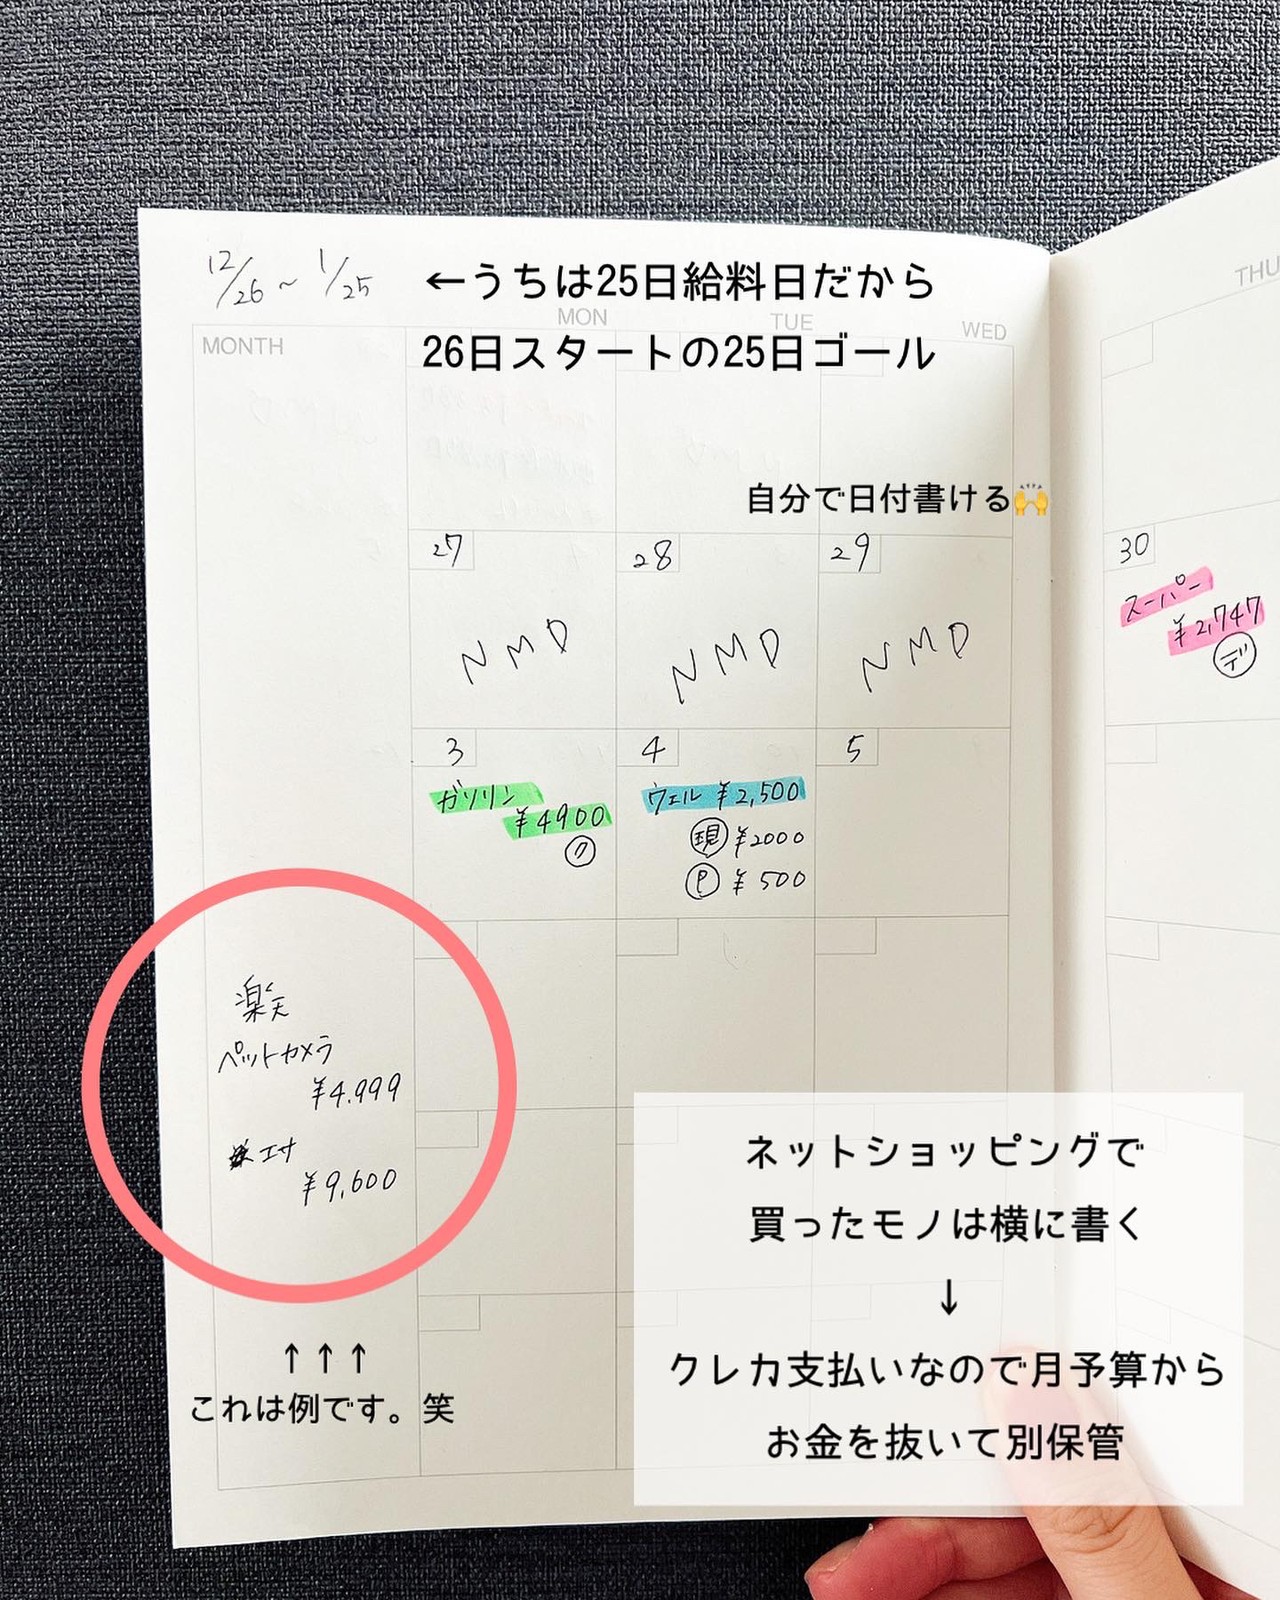 12/26 ~ 1/25
←うちは25日給料日だから
26日スタートの25日ゴール
MONTH
MON
TUE
WED
THU
自分で日付書ける🙌
27
NMD
28
NMD
29
NMD
30
スーパー
¥2,747
デ
3
ガソリン
¥4900
ク
4
ウエル ¥2,500
現 ¥2000
P ¥500
5
楽天
ペットカメラ
¥4.999
エサ
¥9,600
↑↑↑
これは例です。笑
ネットショッピングで
買ったモノは横に書く
↓
クレカ支払いなので月予算から
お金を抜いて別保管